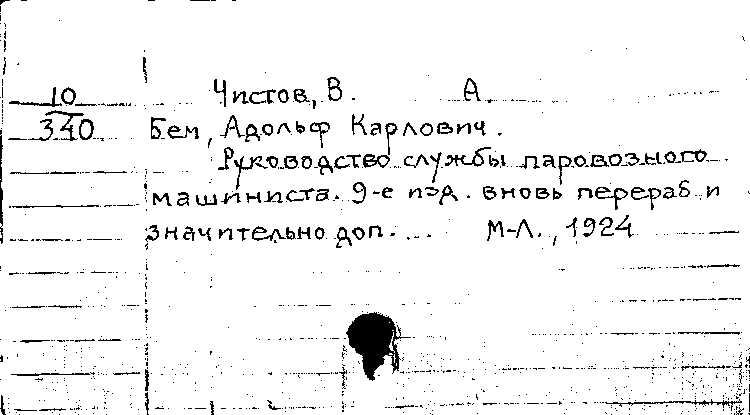 10 Чистов, В. А.
340 Бем, Адольф Карлович.
Руководство службы паровозного
машиниста. 9-е изд. вновь перераб и
значительно доп. ... М-Л., 1924